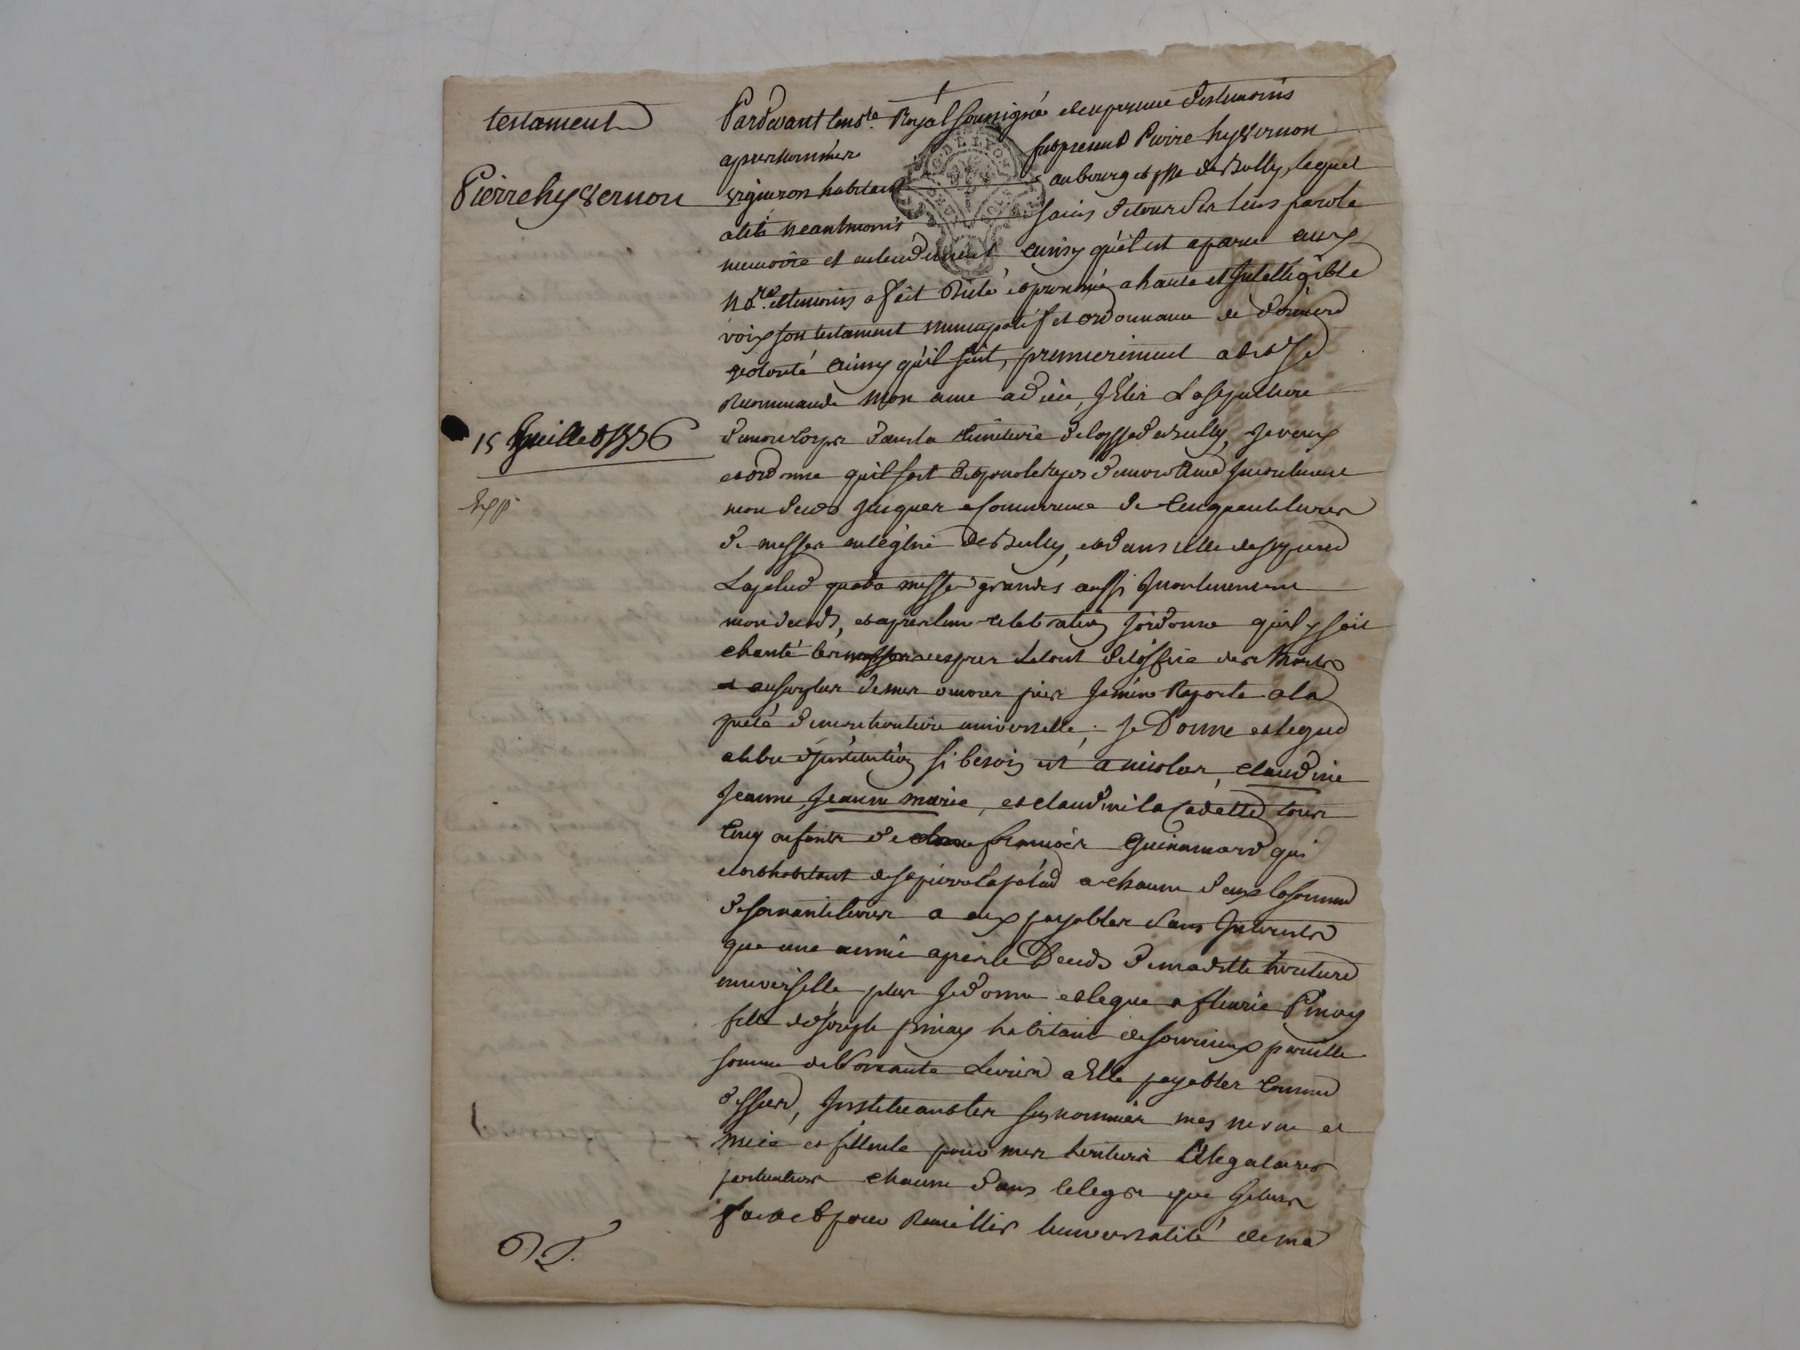 testament
Pierre hyvernon
15 Juillet 1786
Exp.
Pardevant le no.re Royal soussigné et en presence des temoins
apres nommés fut present Pierre hyvernon
vigneron habitant au bourg et psse de Bully, lequel
alité neantmoins sains de tous ses sens parole
memoire et entendement ainsy qu'il est aparu auxd
No.re et temoins a fait dicté et prononcé a haute et Intelligible
voix son testament nuncupatif et ordonnance de derniere
volonté ainsy qu'il suit, premierement a dit Je
Recommande mon ame a dieu, J'Elis La sepulture
de mon corps dans la Cimetiere de la psse de Bully, Je veux
et ordonne qu'il soit dit pour le repos de mon Ame Incontinent
mon decès Jusques a Concurrence de Cinquante livres
de messes en l'églize de Bully, et dans celle de st pierre
Lapalud quatre messes grandes aussi Incontinent
mon decés, et apres leur celebration J'ordonne qu'il y soit
chanté les vespres le tout de l'office des Morts
et au surplus de mes oeuvres pies Je m'en Raporte a la
pieté de mon heritiere universelle; Je Donne et legue
a titre d'Institution si besoin est a nicolas, claudine
Jeanne, Jeanne marie, et claudine la Cadette tous
Cinq enfants de françois Guinamard qui
est habitant de st pierre Lapalud a chacun d'eux la somme
de soixante livres a eux payables sans Interests
que une année apres le Decés de madite heritiere
universelle plus Je donne et legue a fleurie Pinay
fille de Joseph pinay habitant de sourcieux pareille
somme de soixante Livres a Elle payables comme
dessus, Instituant les sus nommés mes neveu et
niece et filleule pour mes heritiers & legataires
particuliers chacun dans le legs que Je leurs
fais et pour Recueillir l'universalité de ma